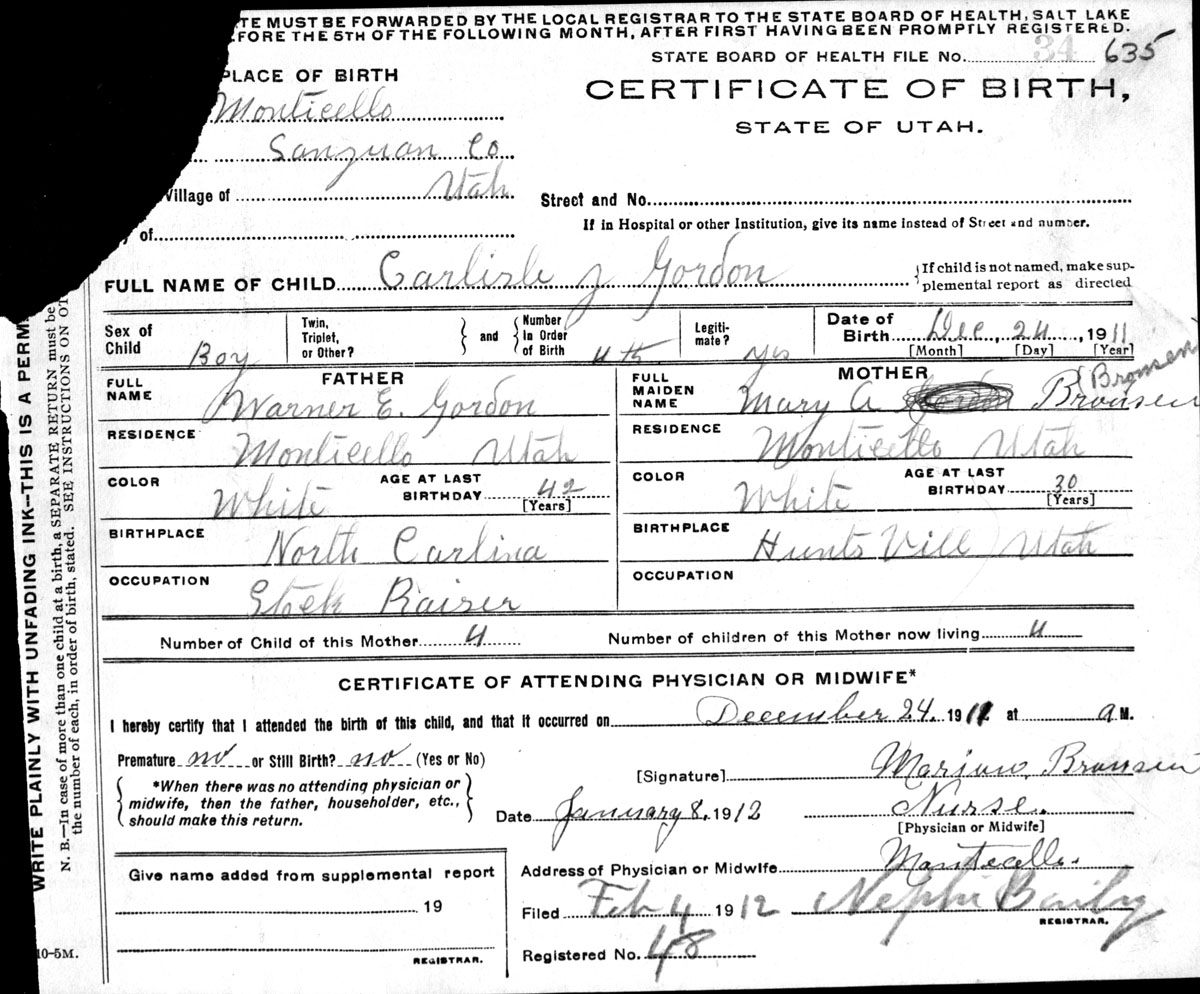 TE MUST BE FORWARDED BY THE LOCAL REGISTRAR TO THE STATE BOARD OF HEALTH, SALT LAKE
EFORE THE 5TH OF THE FOLLOWING MONTH, AFTER FIRST HAVING BEEN PROMPTLY REGISTERED.
STATE BOARD OF HEALTH FILE No. 34 635
PLACE OF BIRTH
CERTIFICATE OF BIRTH,
STATE OF UTAH.
Monticello
Sanjuan Co
Village of Utah
Street and No.
y of
If in Hospital or other Institution, give its name instead of Street and number.
FULL NAME OF CHILD Carlisle J Gordon
{If child is not named, make sup-
plemental report as directed
Sex of Child Boy
Twin, Triplet, or Other?
and Number In Order of Birth 4th
Legiti-mate? yes
Date of Birth Dec. 24, 1911
[Month] [Day] [Year]
FATHER
FULL NAME Warner E. Gordon
RESIDENCE Monticello Utah
COLOR White
AGE AT LAST BIRTHDAY 42 [Years]
BIRTHPLACE North Carlina
OCCUPATION Stock Raiser
MOTHER
FULL MAIDEN NAME Mary A Bronsen (Bronsen
RESIDENCE Monticello Utah
COLOR White
AGE AT LAST BIRTHDAY 30 [Years]
BIRTHPLACE Hunts Vill Utah
OCCUPATION
Number of Child of this Mother 4
Number of children of this Mother now living 4
CERTIFICATE OF ATTENDING PHYSICIAN OR MIDWIFE*
I hereby certify that I attended the birth of this child, and that it occurred on December 24. 1911 at a M.
Premature no or Still Birth? no (Yes or No)
*When there was no attending physician or
midwife, then the father, householder, etc.,
should make this return.
[Signature] Marion Bronsen
Date January 8, 1912
Nurse.
[Physician or Midwife]
Address of Physician or Midwife Monticello.
Give name added from supplemental report
19
REGISTRAR.
Filed Feb 4 1912 Nephi Baily
REGISTRAR.
Registered No. 48
10-5M.
WRITE PLAINLY WITH UNFADING INK--THIS IS A PERM
N. B.--In case of more than one child at a birth, a SEPARATE RETURN must be
the number of each, in order of birth, stated. SEE INSTRUCTIONS ON OT